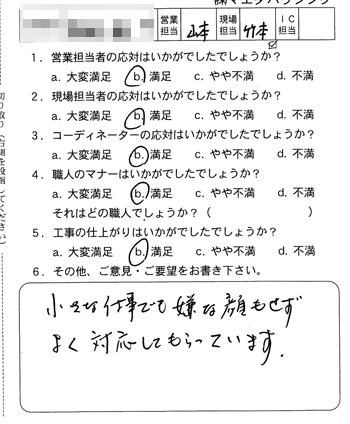 営業担当 山本 現場担当 竹本 IC担当
1．営業担当者の応対はいかがでしたでしょうか？
a. 大変満足 b. 満足 c. やや不満 d. 不満
2．現場担当者の応対はいかがでしたでしょうか？
a. 大変満足 b. 満足 c. やや不満 d. 不満
3．コーディネーターの応対はいかがでしたでしょうか？
a. 大変満足 b. 満足 c. やや不満 d. 不満
4．職人のマナーはいかがでしたでしょうか？
a. 大変満足 b. 満足 c. やや不満 d. 不満
それはどの職人でしょうか？（ ）
5．工事の仕上がりはいかがでしたでしょうか？
a. 大変満足 b. 満足 c. やや不満 d. 不満
6．その他、ご意見・ご要望をお書き下さい。
小さな仕事でも嫌な顔もせず
よく対応してもらっています.